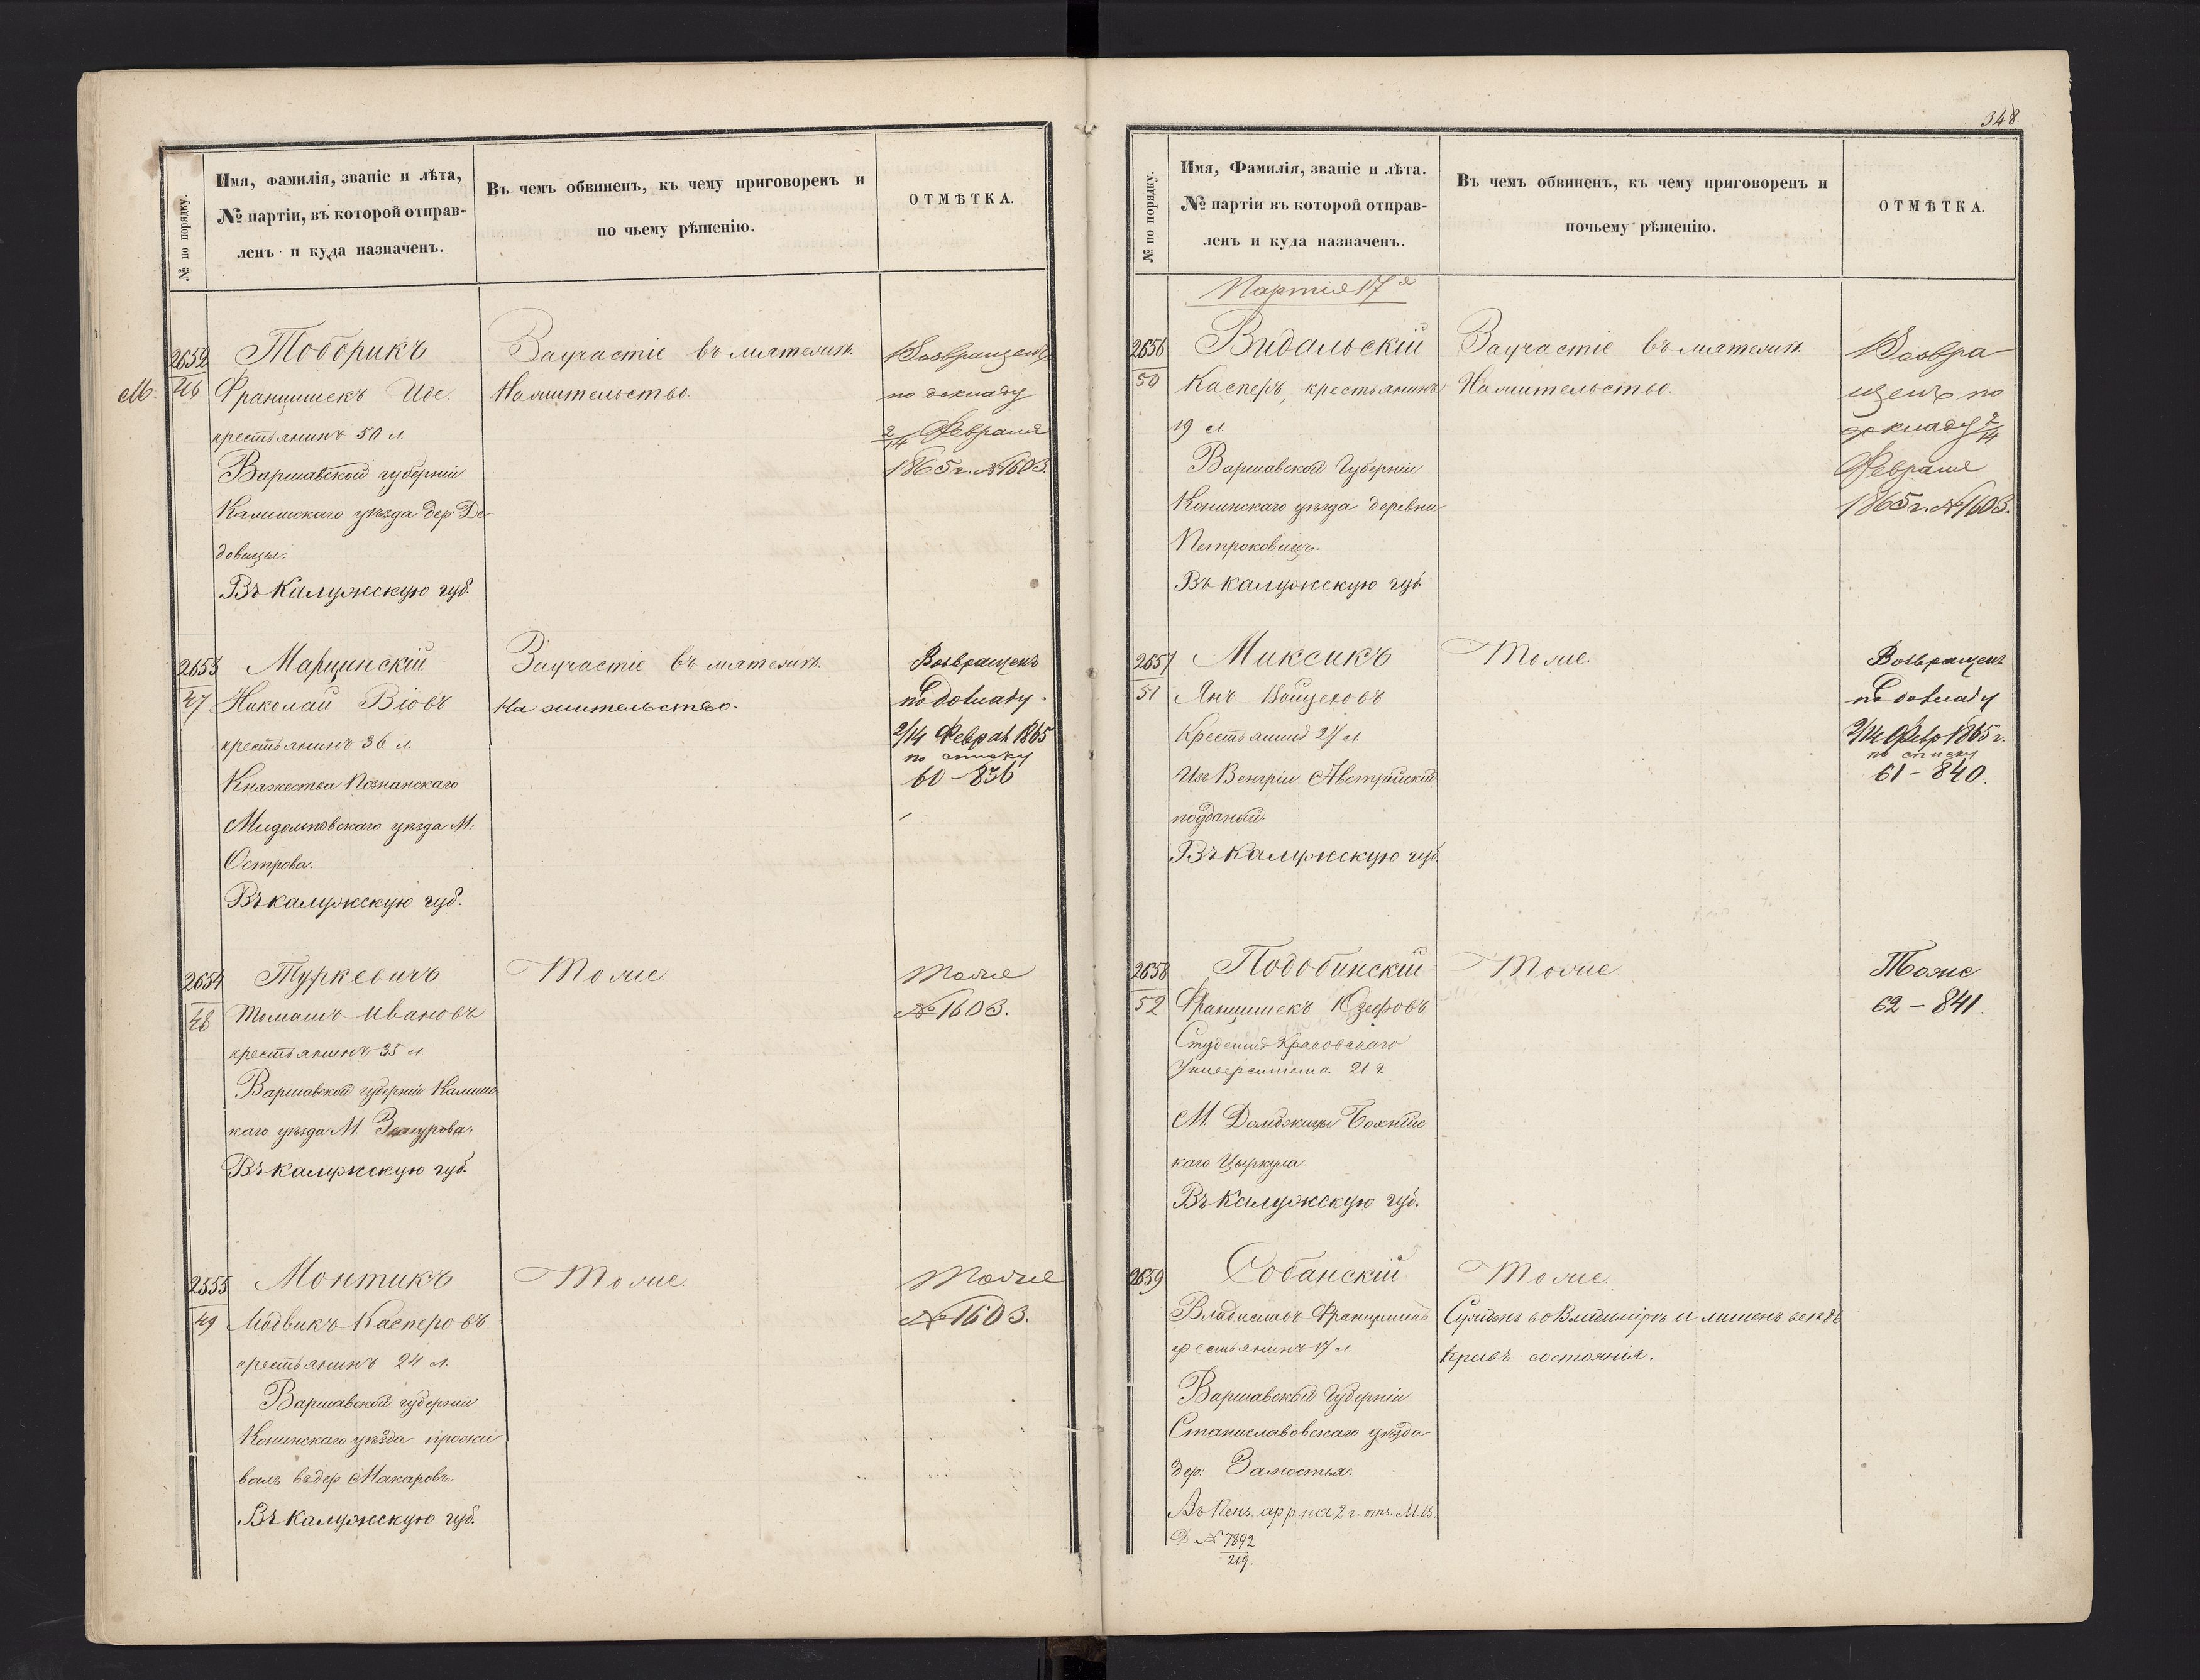 № по порядку.
Имя, фамилія, званіе и лѣта,
№ партіи, въ которой отправ-
ленъ и куда назначенъ.
Въ чемъ обвиненъ, къ чему приговоренъ и
по чьему рѣшенію.
ОТМѢТКА.
2652
46
М.
Тоборикъ
Францишекъ
крестьянинъ 50 л.
Варшавской губерніи
Калишскаго уѣзда дер. Де-
довицы.
Въ Калужскую губ.
За участіе въ мятежѣ.
На жительство.
Возвращенъ
по докладу
2/14 Февраля
1865 г. № 1603.
2653
47
Марцинскій
Николай
крестьянинъ 36 л.
Княжества Познанскаго
уѣзда М.
Острова.
Въ калужскую губ.
За участіе въ мятежѣ.
На жительство.
Возвращенъ
по докладу
2/14 Феврал 1865
по списку
60 – 836
2654
48
Туркевичъ
Томашъ Ивановъ
крестьянинъ 35 л.
Варшавской губерніи Калиш-
каго уѣзда М.
Въ калужскую губ.
Тоже
Тоже
№ 1603.
2555
49
Монтикъ
Людвикъ Касперовъ
крестьянинъ 24 л.
Варшавской губерніи
Конинскаго уѣзда прожи
валъ въ дер Макаровъ.
Въ Калужскую губ.
Тоже
Тоже
№ 1603.
348.
№ по порядку.
Имя, Фамилія, званіе и лѣта.
№ партіи въ которой отправ-
ленъ и куда назначенъ.
Въ чемъ обвиненъ, къ чему приговоренъ и
почьему рѣшенію.
ОТМѢТКА.
Партія 17я
2656
50
Видальскій
Касперъ, крестьянинъ
19 л.
Варшавской Губерніи
Конинскаго уѣзда деревни
Петроковицъ.
Въ калужскую губ.
За участіе въ мятежѣ.
На жительство.
Возвра
щенъ по
докладу 2/14
Февраля
1865 г. № 1603.
2657
51
Миксикъ
Янъ Войцеховъ
Крестьянинъ 27 л.
Изъ Венгріи Австрійскій
подданый.
Въ калужскую губ.
Тоже.
Возвращенъ
по докладу
2/14 Февр 1865 г.
по списку
61 – 840.
2658
52
Подобинскій
Францишекъ Юзефовъ
Студентъ Краковскаго
Университета. 21 г.
М. Бохній
каго Циркула.
Въ Калужскую губ.
Тоже
Тоже
62 – 841.
2659
Собанскій
Владиславъ
крестьянинъ 17 л.
Варшавской Губерніи
Станиславовскаго уѣзда
дер: Замостья.
Въ Пенз. ар р на 2 г. отъ. М. В.
Д № 7892
219.
Тоже.
Сужденъ во Владимірѣ и лишенъ всѣхъ
правъ состоянія.